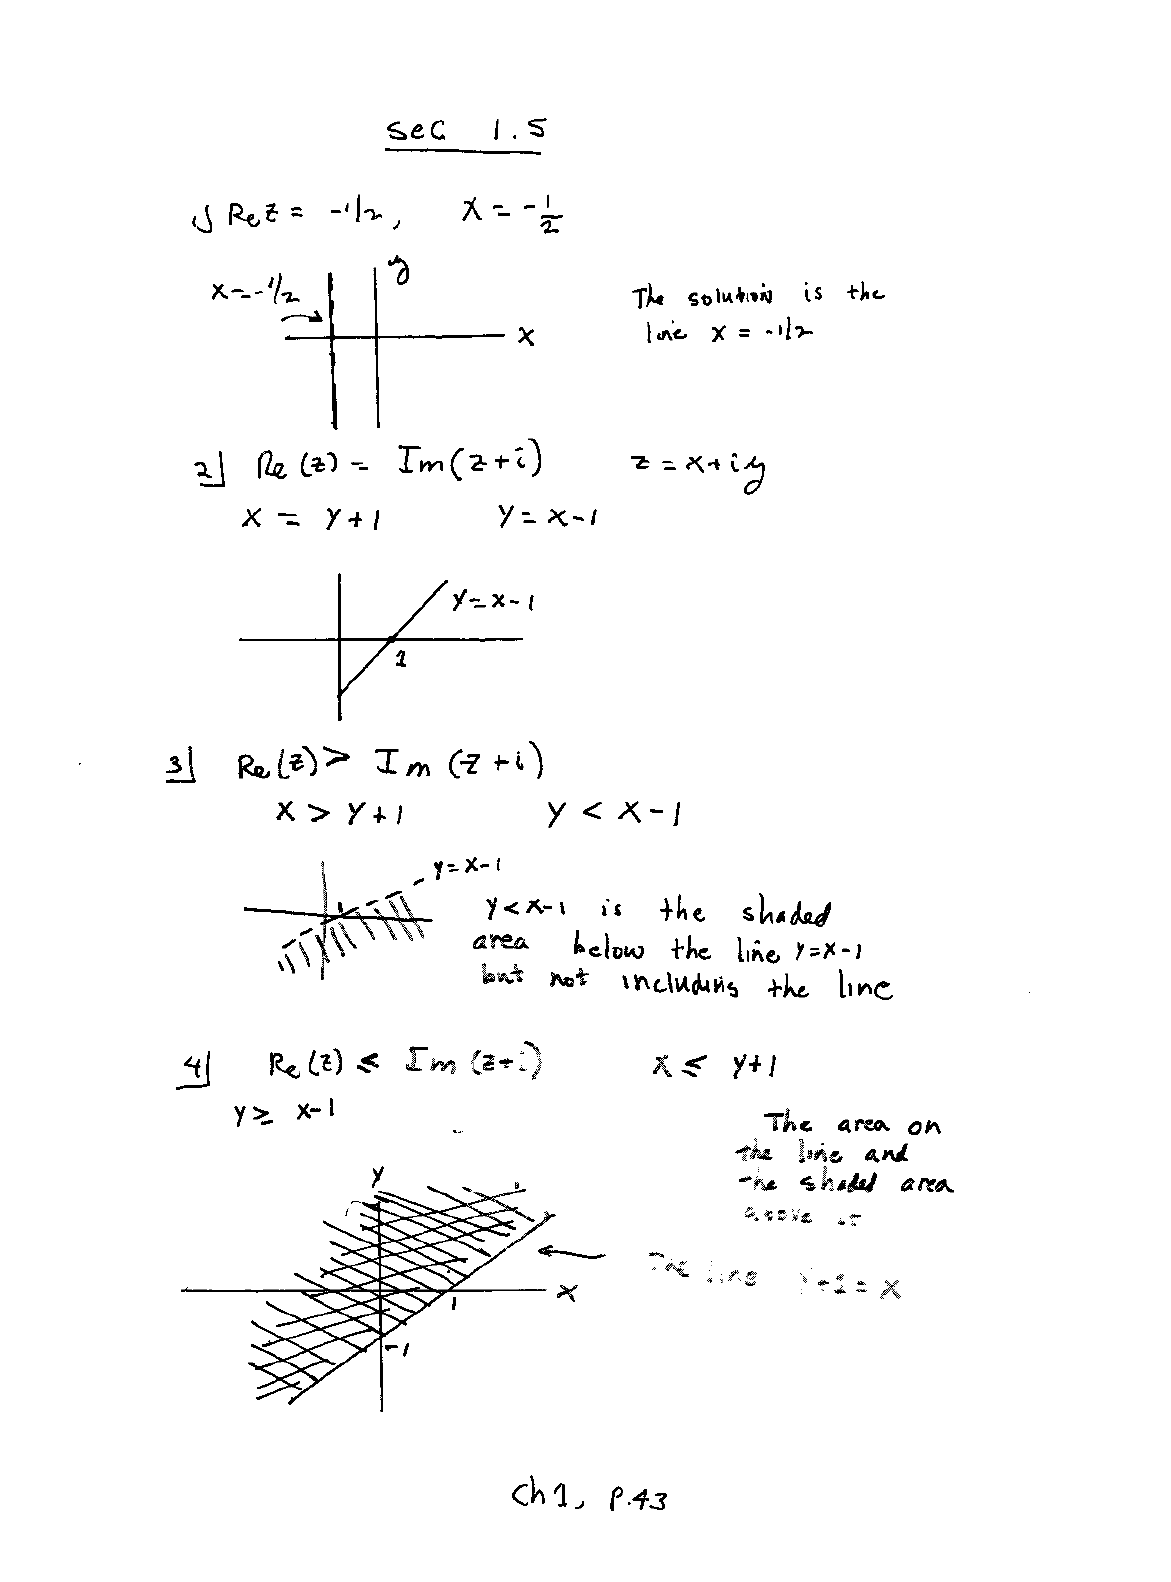 sec 1.5
1) Re z = -1/2, x = -1/2
x = -1/2
y
x
The solution is the
line x = -1/2
2) Re (z) = Im (z + i) z = x + iy
x = y + 1 y = x - 1
y = x - 1
1
3) Re (z) > Im (z + i)
x > y + 1 y < x - 1
y = x - 1
1
y < x - 1 is the shaded
area below the line y = x - 1
but not including the line
4) Re (z) ≤ Im (z + i) x ≤ y + 1
y ≥ x - 1
The area on
the line and
the shaded area
above it
y
The line y + 1 = x
x
1
-1
Ch 1, P. 43